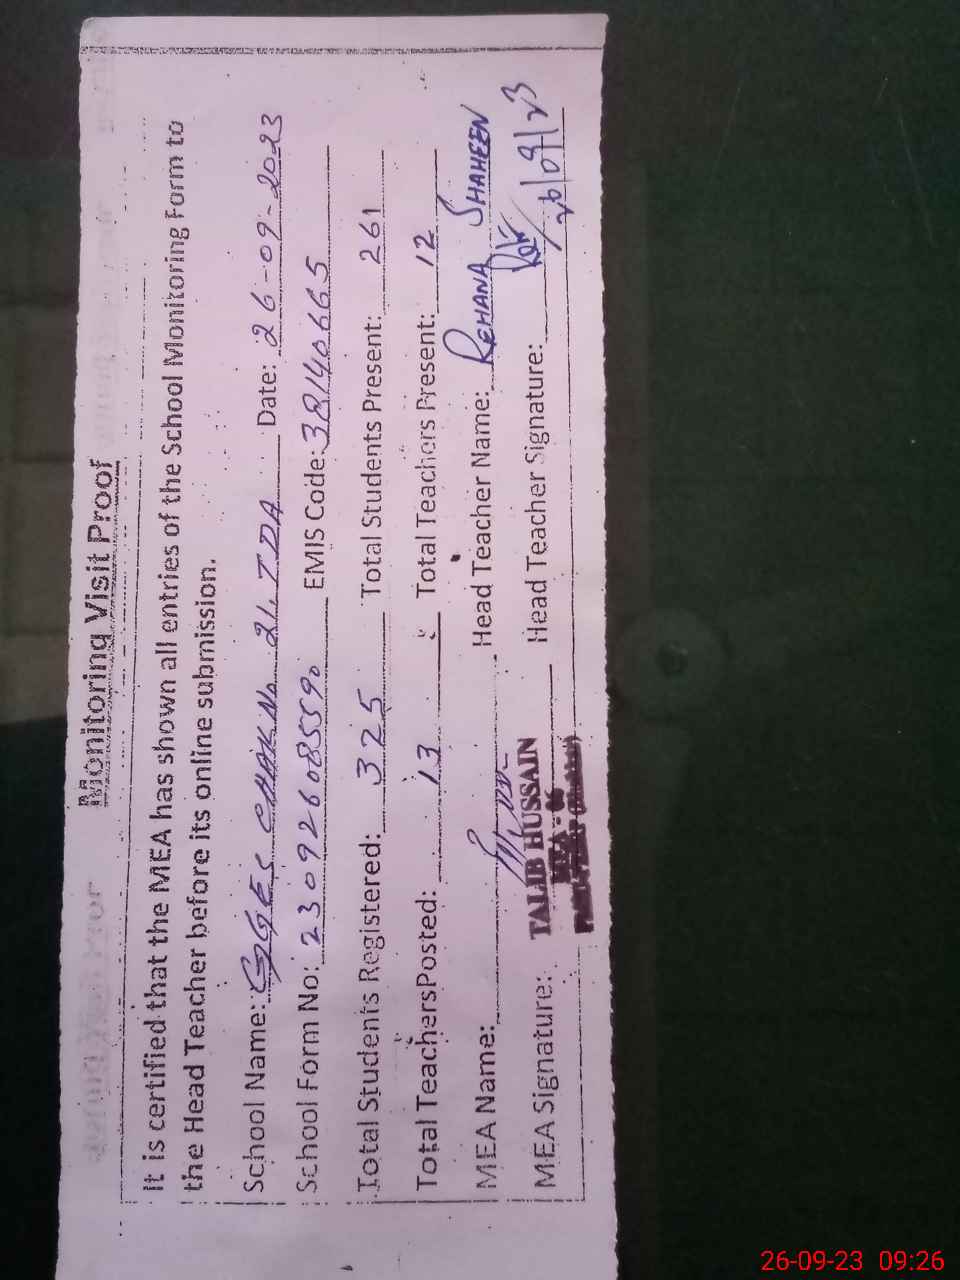 Monitoring Visit Proof
It is certified that the MEA has shown all entries of the School Monitoring Form to
the Head Teacher before its online submission.
School Name: GGES CHAK No 21.TDA Date: 26-09-2023
School Form No: 23092608559० EMIS Code: 38140665
Total Students Registered: 325 Total Students Present: 261
Total TeachersPosted: 13 Total Teachers Present: 12
MEA Name: Head Teacher Name: REHANA SHAHEEN
MEA Signature: TALIB HUSSAIN Head Teacher Signature: 26/09/23
MEA - 06
26-09-23 09:26